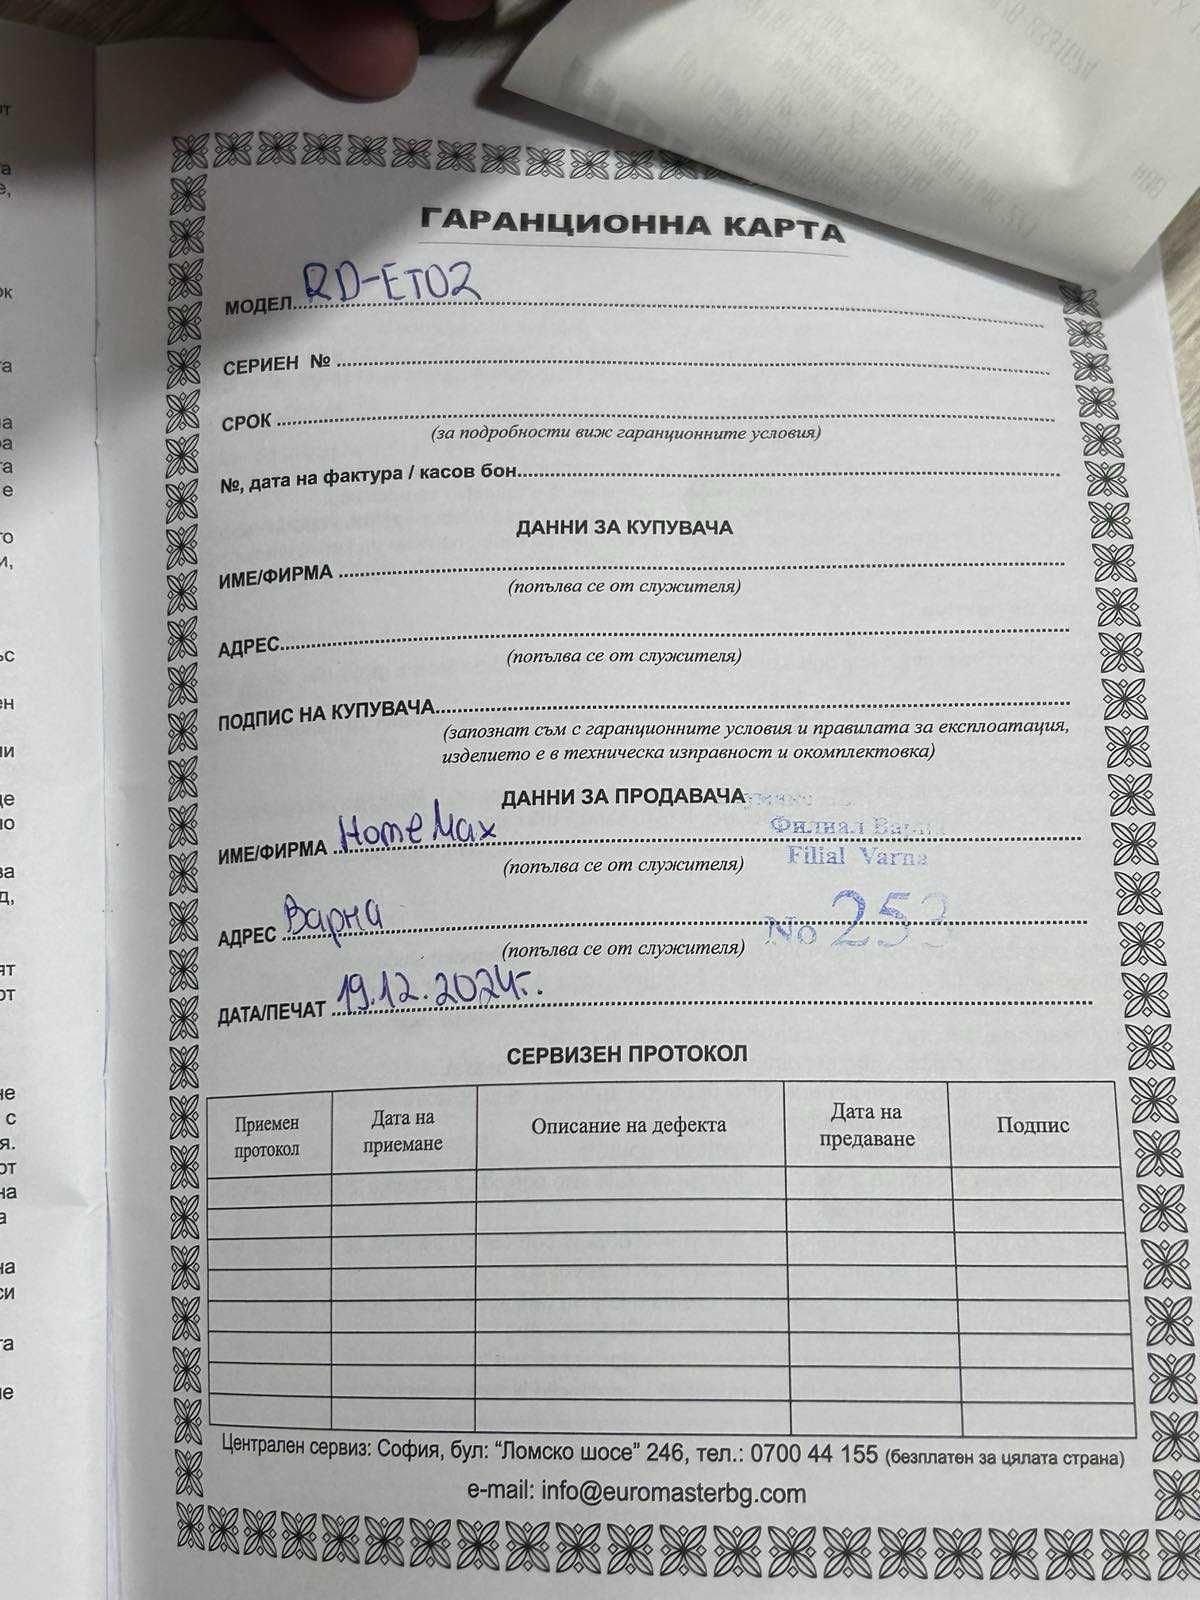 ГАРАНЦИОННА КАРТА
МОДЕЛ RD-ET02
СЕРИЕН №
СРОК
(за подробности виж гаранционните условия)
№, дата на фактура / касов бон
ДАННИ ЗА КУПУВАЧА
ИМЕ/ФИРМА
(попълва се от служителя)
АДРЕС
(попълва се от служителя)
ПОДПИС НА КУПУВАЧА
(запознат съм с гаранционните условия и правилата за експлоатация,
изделието е в техническа изправност и окомплектовка)
ДАННИ ЗА ПРОДАВАЧА
Филиал Варна
ИМЕ/ФИРМА HomeMax
Filial Varna
(попълва се от служителя)
АДРЕС Варна
No 253
(попълва се от служителя)
ДАТА/ПЕЧАТ 19.12.2024г.
СЕРВИЗЕН ПРОТОКОЛ
Приемен протокол
Дата на приемане
Описание на дефекта
Дата на предаване
Подпис
Централен сервиз: София, бул: “Ломско шосе” 246, тел.: 0700 44 155 (безплатен за цялата страна)
e-mail: info@euromasterbg.com